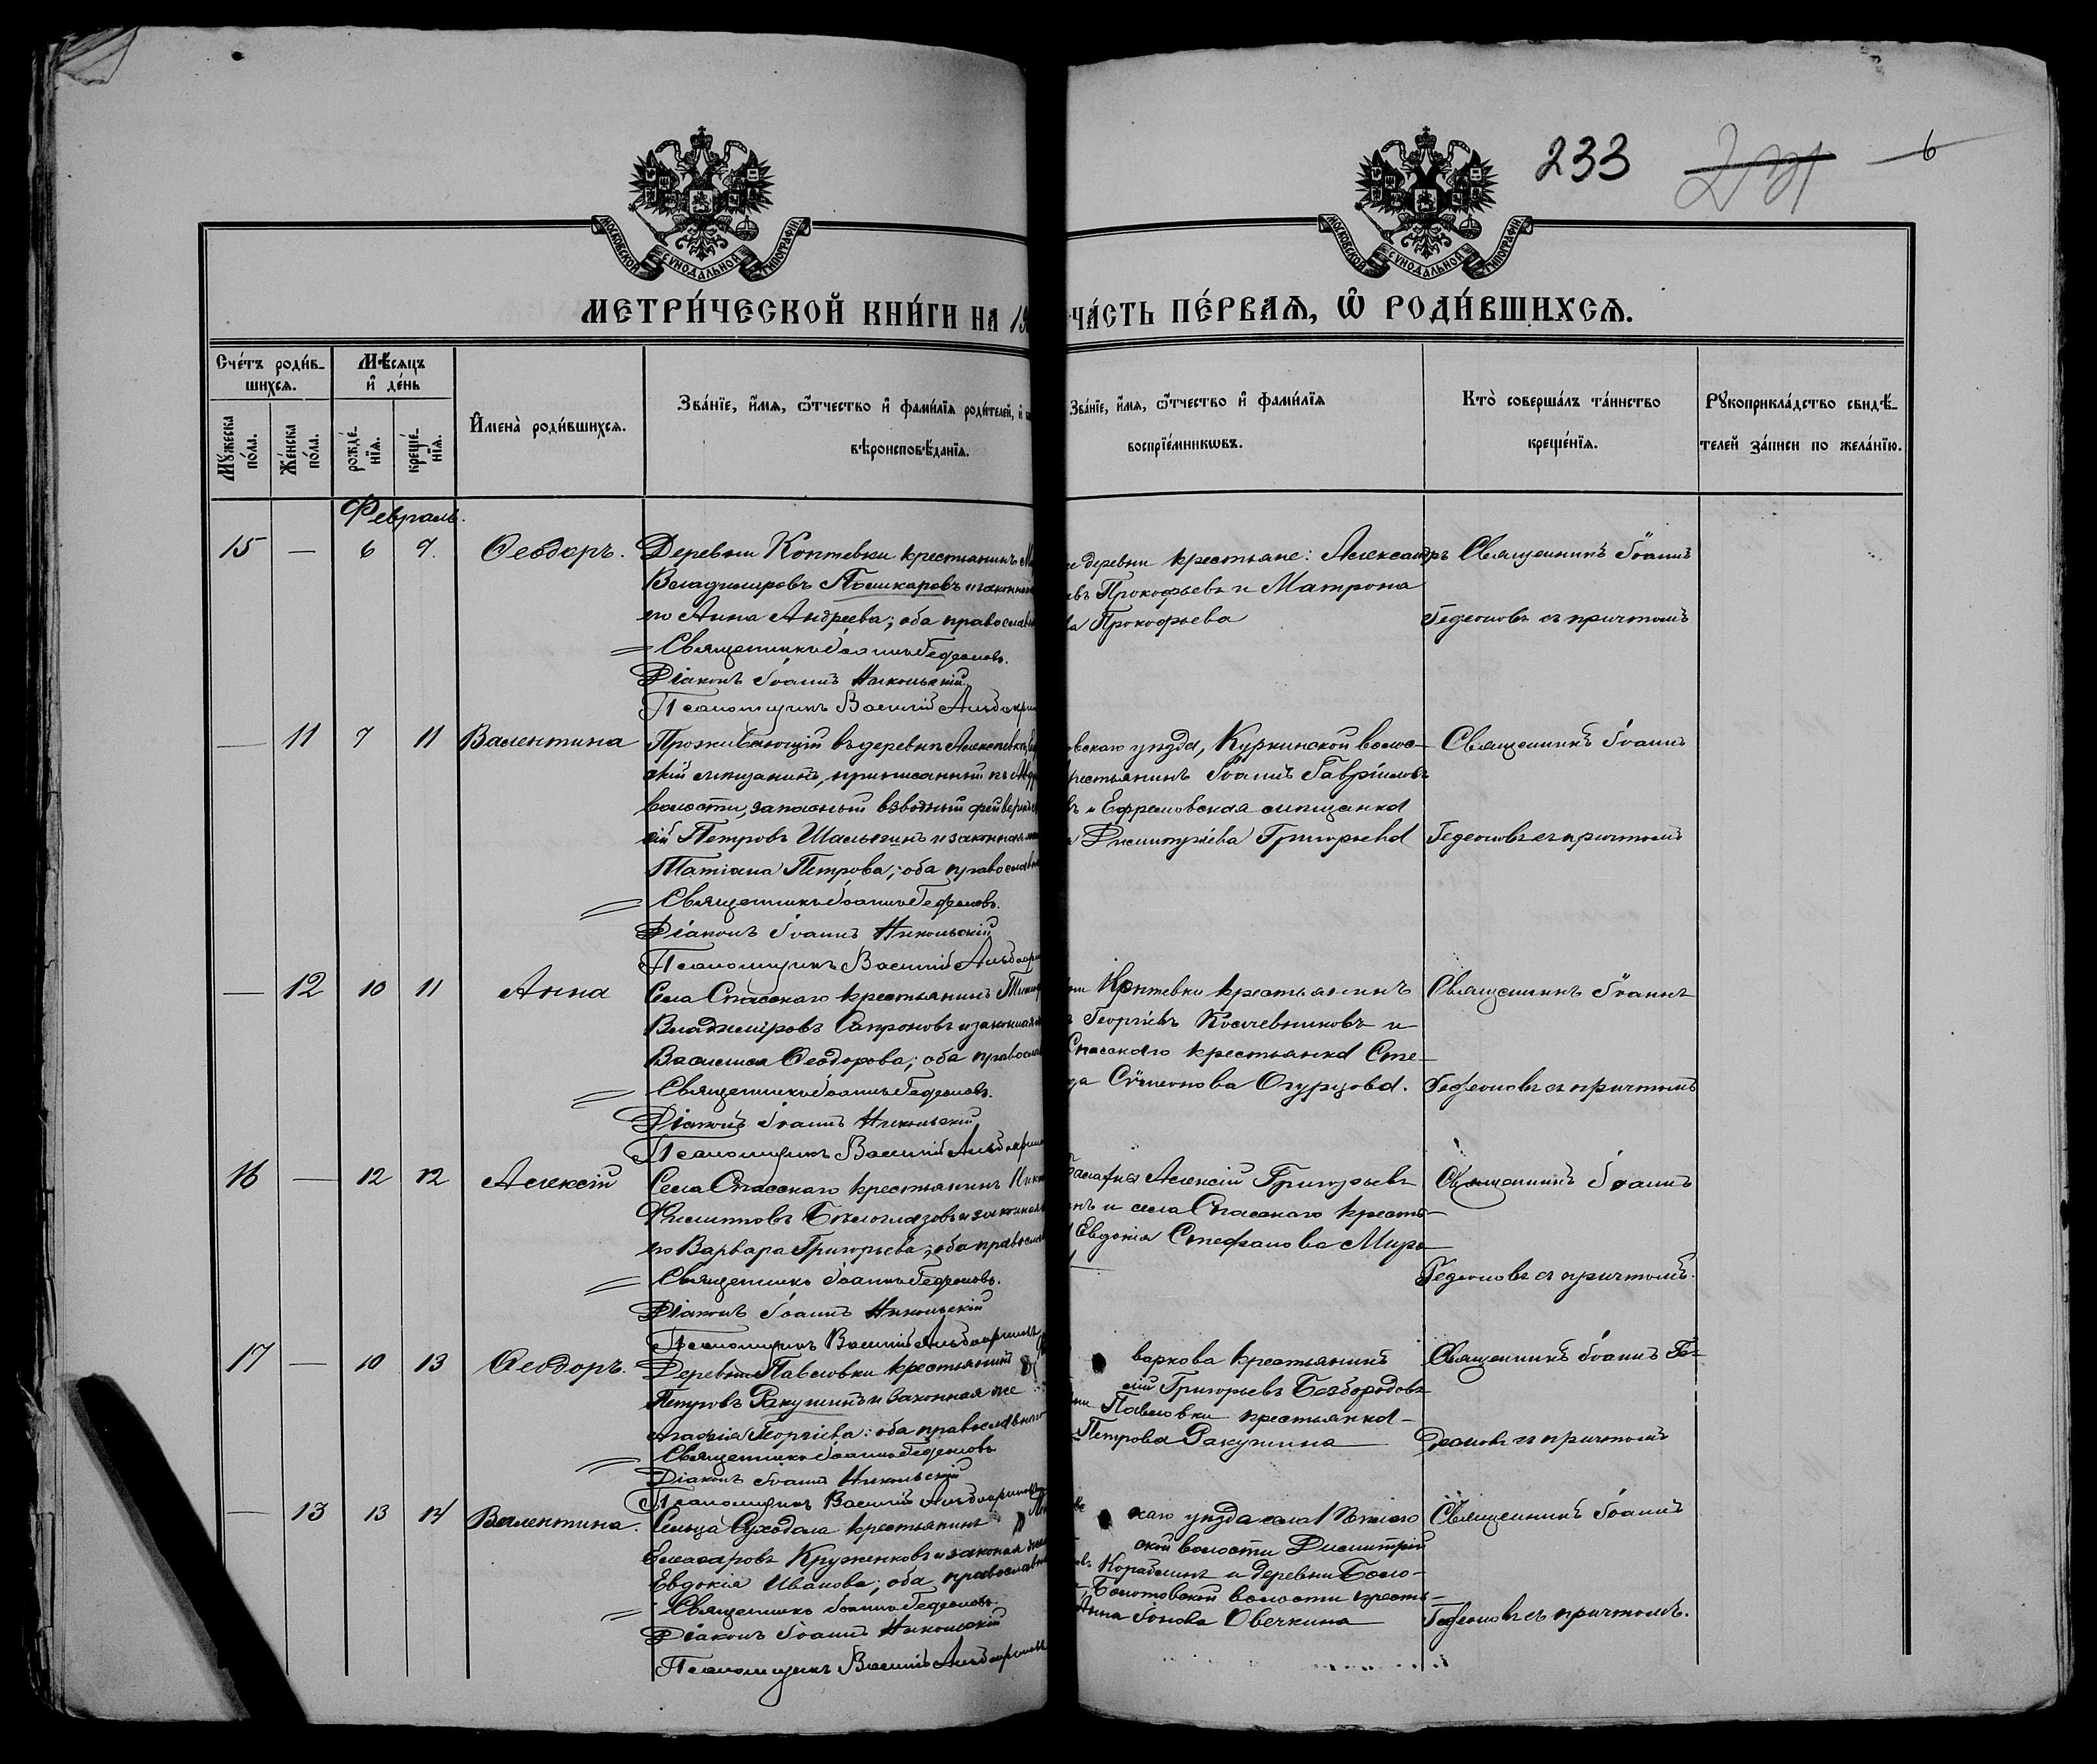 233 231 6
МОСКОВСКОЙ СУНОДАЛЬНОЙ ТИПОГРАФІИ
МОСКОВСКОЙ СУНОДАЛЬНОЙ ТИПОГРАФІИ
МЕТРИ́ЧЕСКОЙ КНИ́ГИ НА 19
ЧА́СТЬ ПЕ́РВАѦ, Ѡ҆ РОДИ́ВШИХСѦ.
Сче́тъ роди́в-
шихсѧ.
Мꙋжеска по́ла.
Же́нска по́ла.
Мѣ́сѧцъ
и҆ де́нь
рожде́-
нїѧ.
креще́-
нїѧ.
И҆мена̀ роди́вшихсѧ.
Зва́нїе, и҆́мѧ, ѻ҆́тчество и҆ фами́лїѧ роди́телей, и҆
вѣроисповѣ́данїѧ.
Зва́нїе, и҆́мѧ, ѻ҆́тчество и҆ фами́лїѧ
воспрїе́мникѡвъ.
Кто̀ соверша́лъ та́инство
креще́нїѧ.
Рꙋкоприкла́дство свидѣ́-
телей за́писи по жела́нїю.
Февраль.
15 — 6 7. Ѳеодоръ.
Деревни Коптевки крестьянинъ
Владиміровъ Пошкаровъ и законная
его Анна Андреева; оба православн
Священникъ Іоаннъ Гедеоновъ.
Діаконъ Іоаннъ Никольскій
Псаломщикъ Василій
е деревни крестьяне: Александръ
евъ Прокофьевъ и Матрона
ва Прокофьева
Священникъ Іоаннъ
Гедеоновъ съ причтомъ
— 11 7 11 Валентина
Проживающій въ деревнѣ Алексѣевкѣ
скій мѣщанинъ, приписанный къ
волости, запасный взводный фейверкъ
сій Петровъ Шалыгинъ и законная
Татіана Петрова; оба православн
Священникъ Іоаннъ Гедеоновъ.
Діаконъ Іоаннъ Никольскій
Псаломщикъ Василій
овскаго уѣзда, Куркинской волос-
крестьянинъ Іоаннъ Гавріиловъ
въ и Ефремовская мѣщанка
Димитріева Григорьева
Священникъ Іоаннъ
Гедеоновъ съ причтомъ
— 12 10 11 Анна
Села Спасскаго крестьянинъ
Владиміровъ Сапроновъ и законная
Василиса Ѳеодорова; оба правосла
Священникъ Іоаннъ Гедеоновъ.
Діаконъ Іоаннъ Никольскій
Псаломщикъ Василій
ни Коптевки крестьянинъ
Георгіевъ Кочевниковъ и
Спасскаго крестьянка Сте-
да Сѵмеонова Огурцова.
Священникъ Іоаннъ
Гедеоновъ съ причтомъ
16 — 12 12 Алексій
Села Спасскаго крестьянинъ
Филипповъ Бѣлоглазовъ и законная
его Варвара Григорьева; оба правосла
Священникъ Іоаннъ Гедеоновъ.
Діаконъ Іоаннъ Никольскій
Псаломщикъ Василій
Алексій Григорьевъ
нъ и села Спасскаго кресть-
Евдокія Стефанова
Священникъ Іоаннъ
Гедеоновъ съ причтомъ.
17 — 10 13 Ѳеодоръ.
Деревни Павловки крестьянинъ
Петровъ Ракушинъ и законная же
Агафія Георгіева: оба православнаго
Священникъ Іоаннъ Гедеоновъ
Діаконъ Іоаннъ Никольскій
Псаломщикъ Василій
варкова крестьянинъ
сій Григорьевъ Безбородовъ
ни Павловки крестьянка
Петрова Ракушина
Священникъ Іоаннъ Ге-
деоновъ съ причтомъ
— 13 13 14 Валентина.
Сельца Суходола крестьянинъ
Елеазаровъ Круженковъ и законная
Евдокія Иванова; оба православн
Священникъ Іоаннъ Гедеоновъ.
Діаконъ Іоаннъ Никольскій
Псаломщикъ Василій
скаго уѣзда села
ской волости Димитрій
Кораблинъ и деревни Боло-
Болотовской волости кресть-
Анна Іонова Овечкина
Священникъ Іоаннъ
Гедеоновъ съ причтомъ.